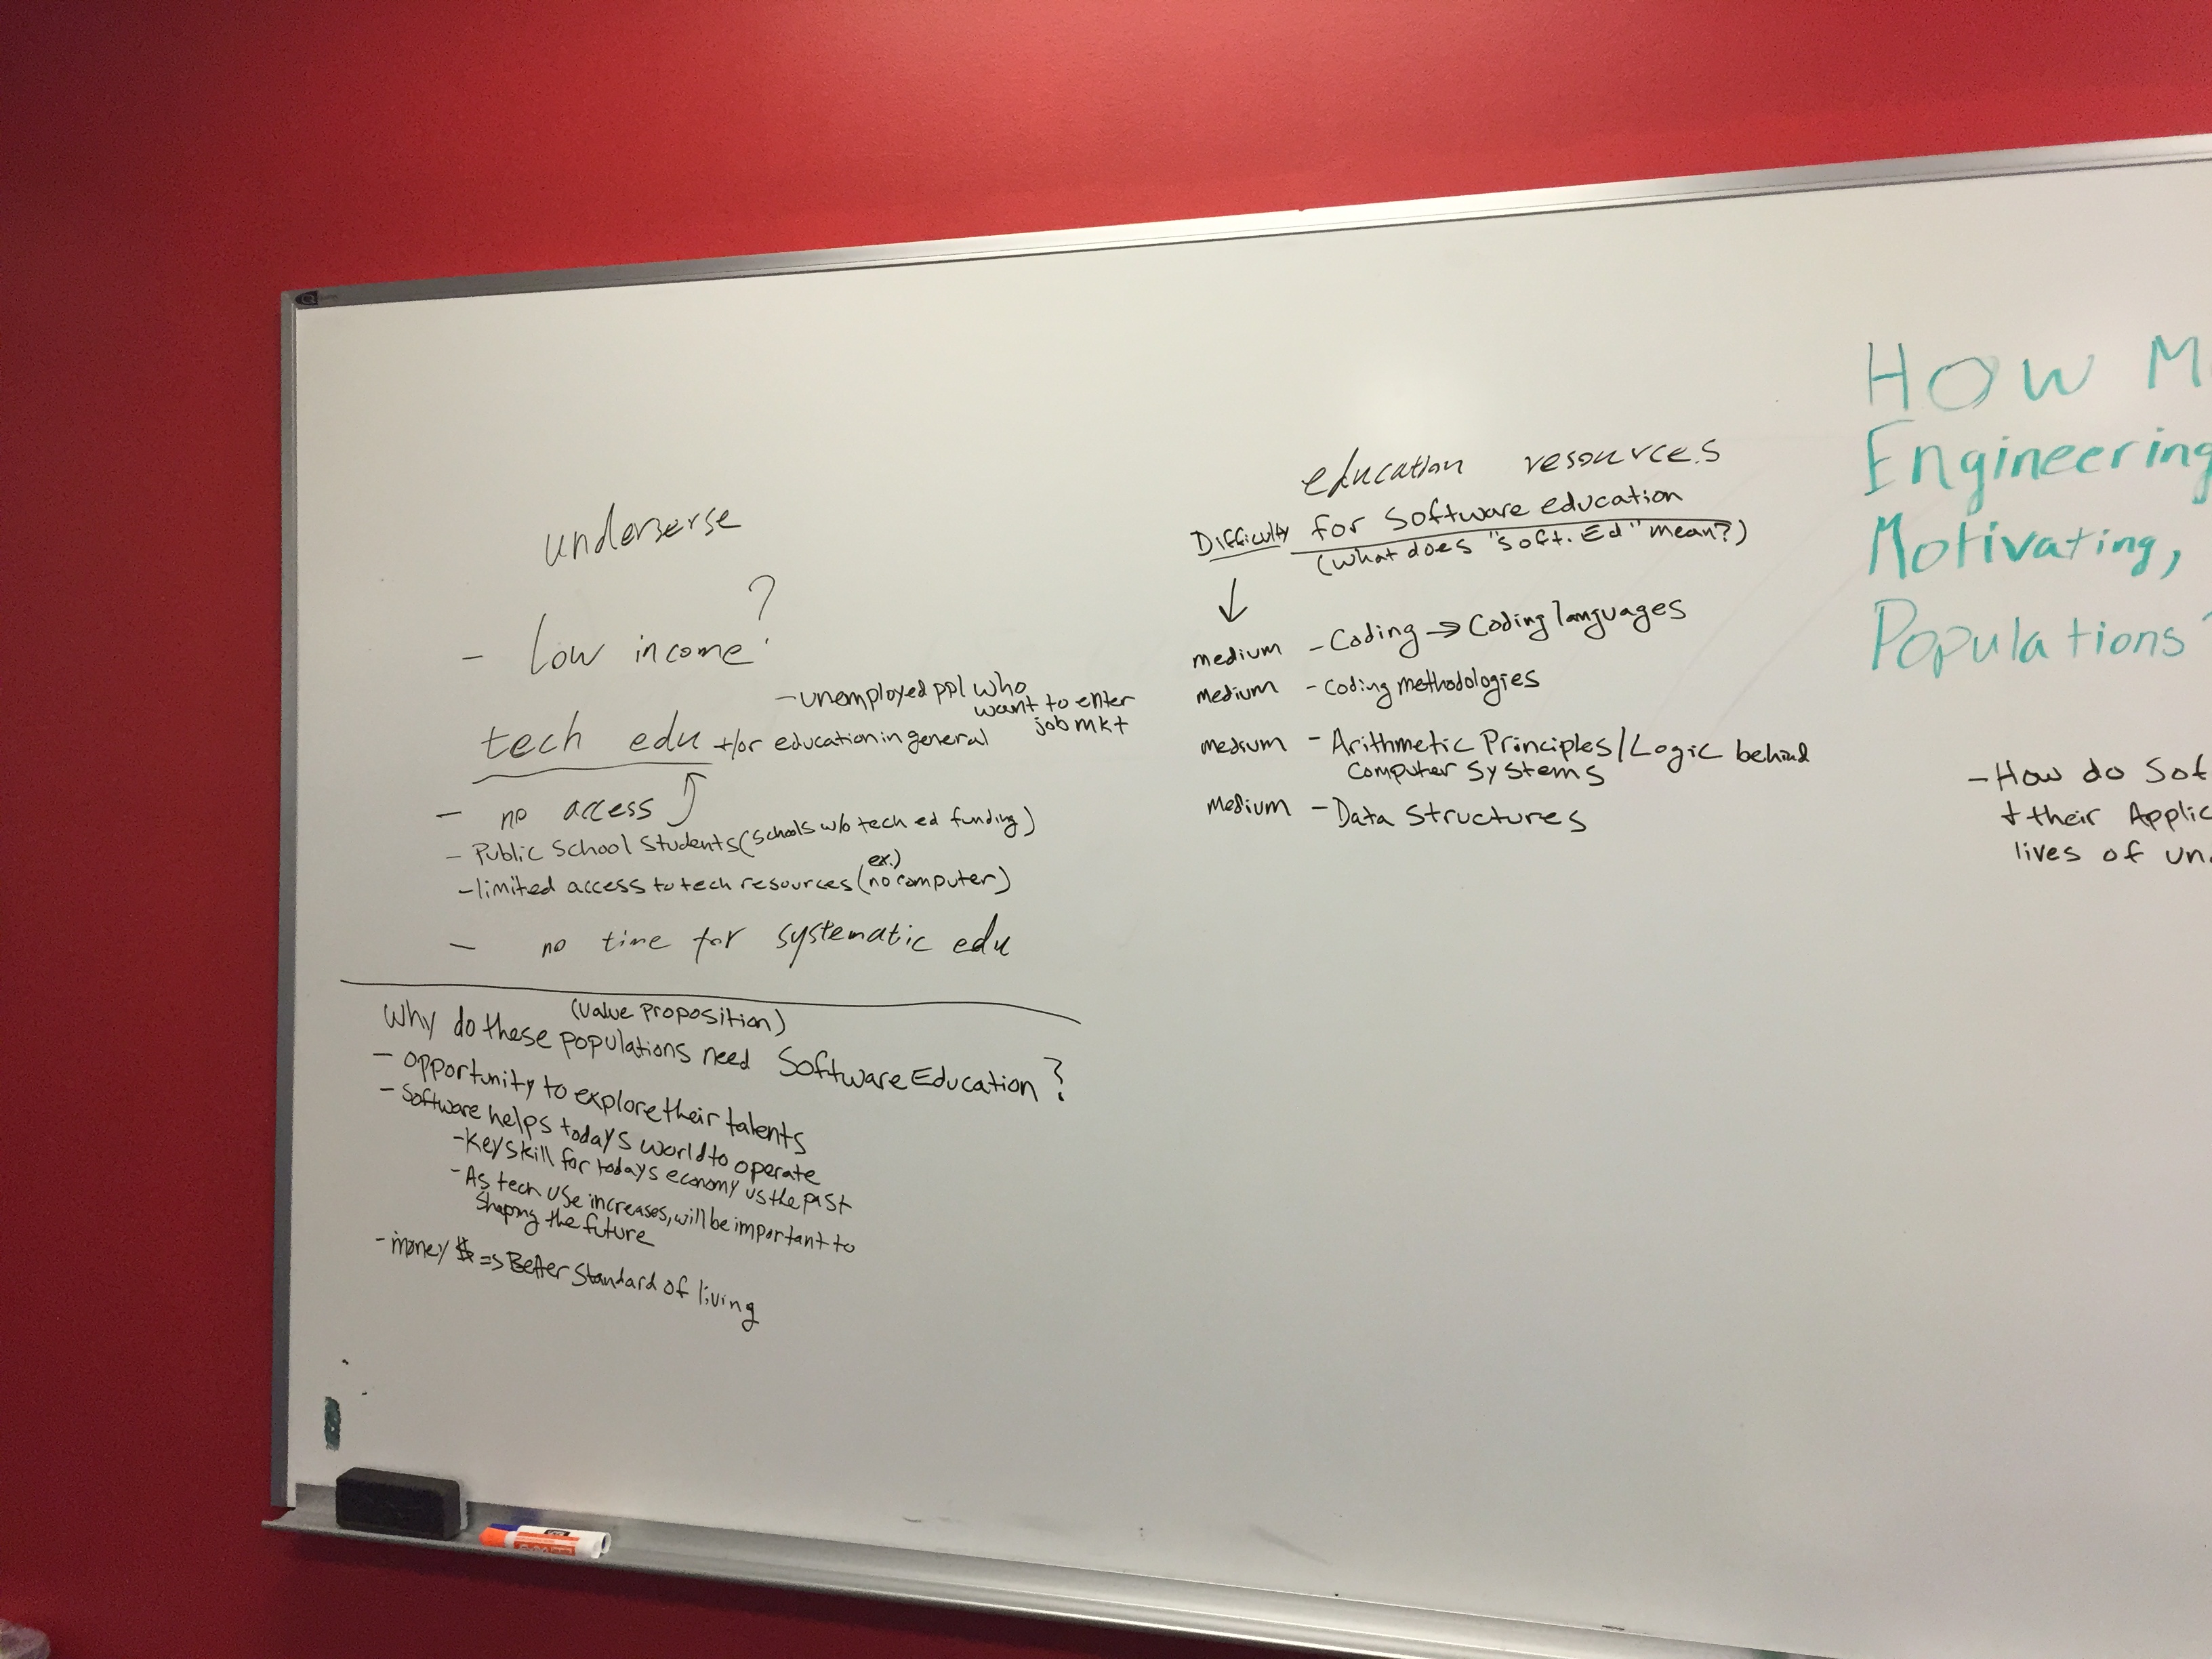 underserse
- low income?
- unemployed ppl who
want to enter
job mkt
tech edu +/or education in general
- no access
- Public School Students (schools w/o tech ed funding)
- limited access to tech resources (ex.) no computer)
- no time for systematic edu
(value proposition)
Why do these populations need Software Education?
- opportunity to explore their talents
- Software helps todays world to operate
- Key skill for todays economy vs the past
- As tech use increases, will be important to
shaping the future
- money $ => Better Standard of living
education resources
Difficulty for Software education
(what does "soft. Ed" mean?)
medium - Coding → Coding languages
medium - Coding methodologies
medium - Arithmetic Principles/Logic behind
Computer Systems
medium - Data Structures
HOW M
Engineering
Motivating,
Populations?
- How do Sof
+ their Applic
lives of un